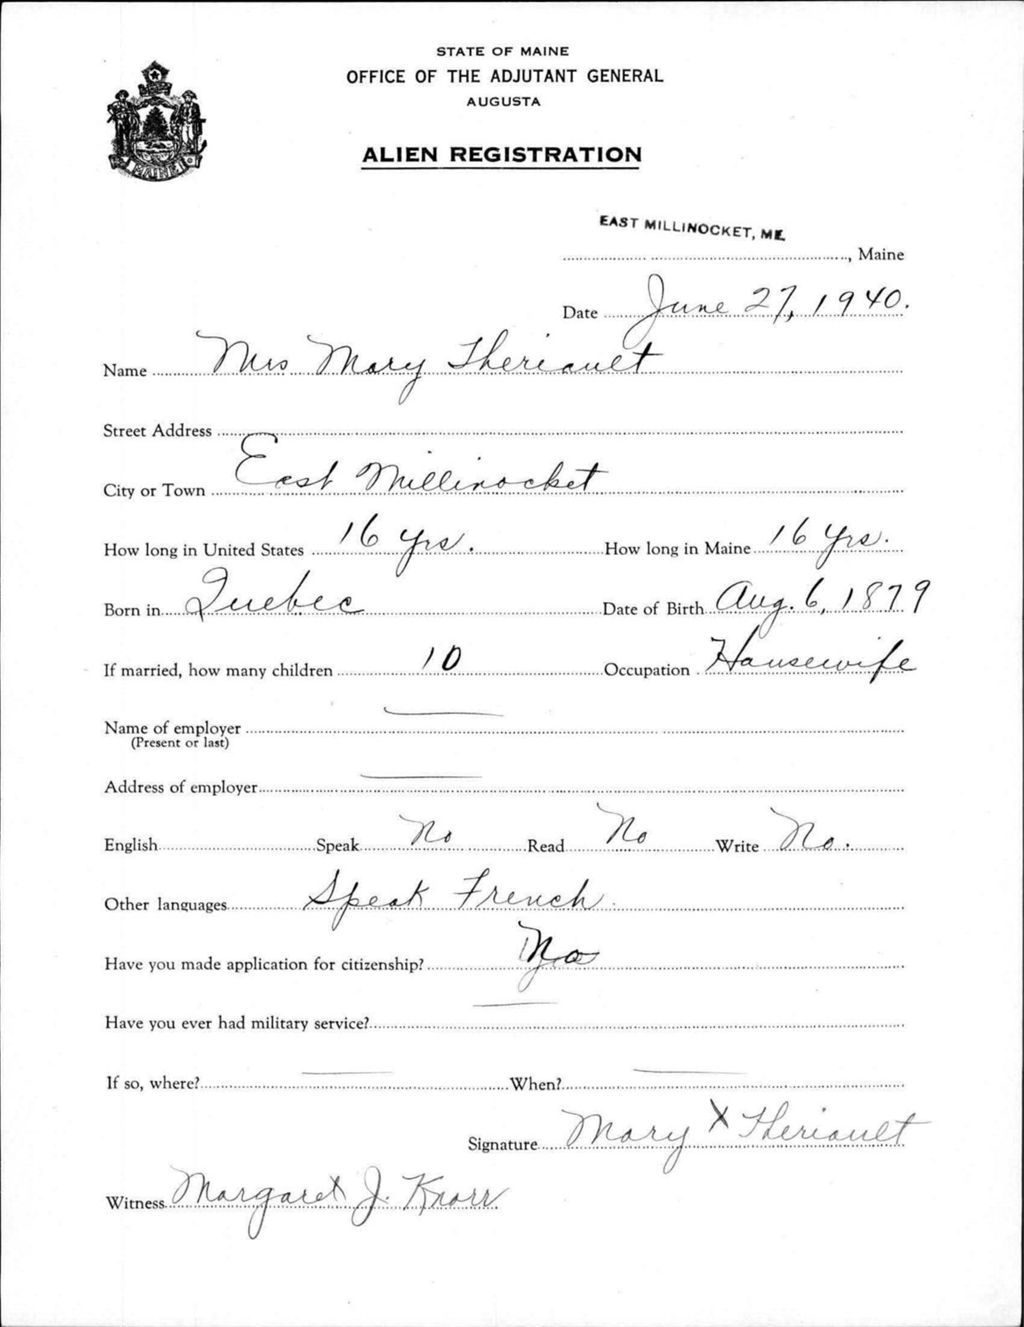 STATE OF MAINE
OFFICE OF THE ADJUTANT GENERAL
AUGUSTA
ALIEN REGISTRATION
MAINE
EAST MILLINOCKET, ME.
, Maine
Date June 27, 1940.
Name Mrs Mary Theriault
Street Address
City or Town East Millinocket
How long in United States 16 yrs. How long in Maine 16 yrs.
Born in Quebec Date of Birth Aug. 6, 1879
If married, how many children 10 Occupation Housewife
Name of employer
(Present or last)
Address of employer
English Speak No Read No Write No.
Other languages Speak French.
Have you made application for citizenship? No
Have you ever had military service?
If so, where? When?
Signature Mary X Theriault
Witness Margaret J. Knorr